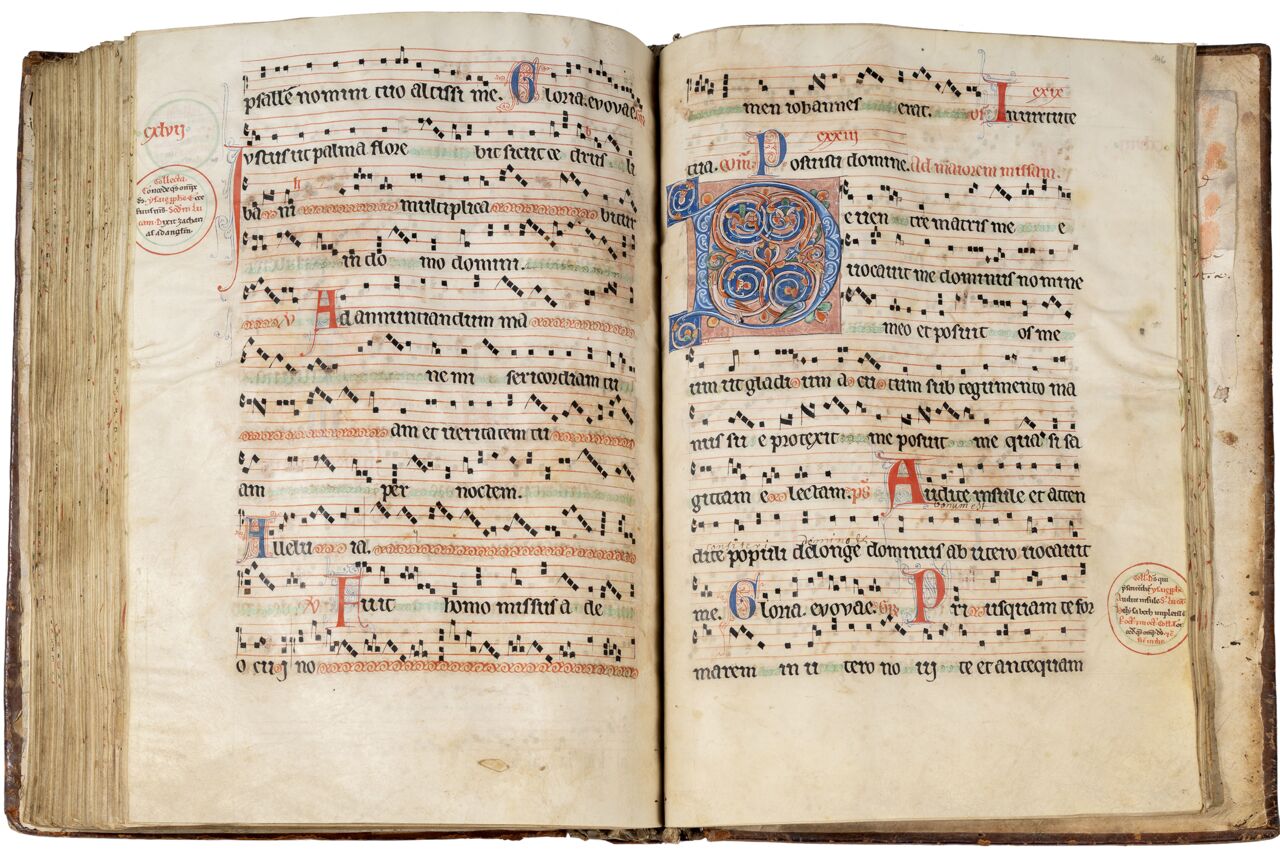 psallē nomini tuo altissi me. Gloria. evovae.
cxlvij
Iustus ut palma flore bit sicut ce drus li
Collecta
Concede qs omps
ba ni multiplica bitur
in do mo domini.
V Ad annuntiandum ma
ne mi sericordiam tu
am et ueritatem tu
am per noctem.
Alleluia.
V Fuit homo missus a de
o cui no
men iohannes erat. In uirtute
cxxiij
tua. com. Posuisti domine. Ad maiorem missam.
De uen tre matris me e
uocauit me dominus nomine
meo et posuit os me
um ut gladium acutum sub tegumento ma
nus su e protexit me posuit me quasi sa
gittam e lectam. ps Audite insule et atten
bonum est
dite populi de longe dominus ab utero uocauit
me. Gloria. evovae. Pri usquam te for
marem in u tero no ui te et antequam